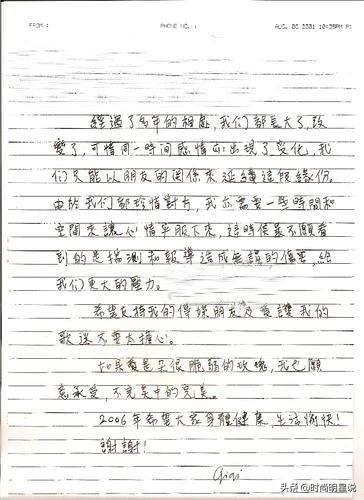 FROM : PHONE NO. : AUG. 06 2001 10:35PM P1
經過了多年的相處,我们都長大了,改
變了,可惜同一時間感情亦出現了变化,我
们只能以朋友的関係來延續這段緣份。
由於我们都珍惜對方,我亦需要一些時間和
空間來讓心情平服下來,這時候最不願看
到的是揣測和報導造成無謂的傷害,給
我们更大的壓力。
希望支持我的傳媒朋友及愛護我的
歌迷不要太擔心。
如果愛是朵很脆弱的玫瑰,我也願
意承受,不完美中的完美。
2006年希望大家身體健康,生活愉快!
謝謝!
Gigi
头条 @时尚明星说